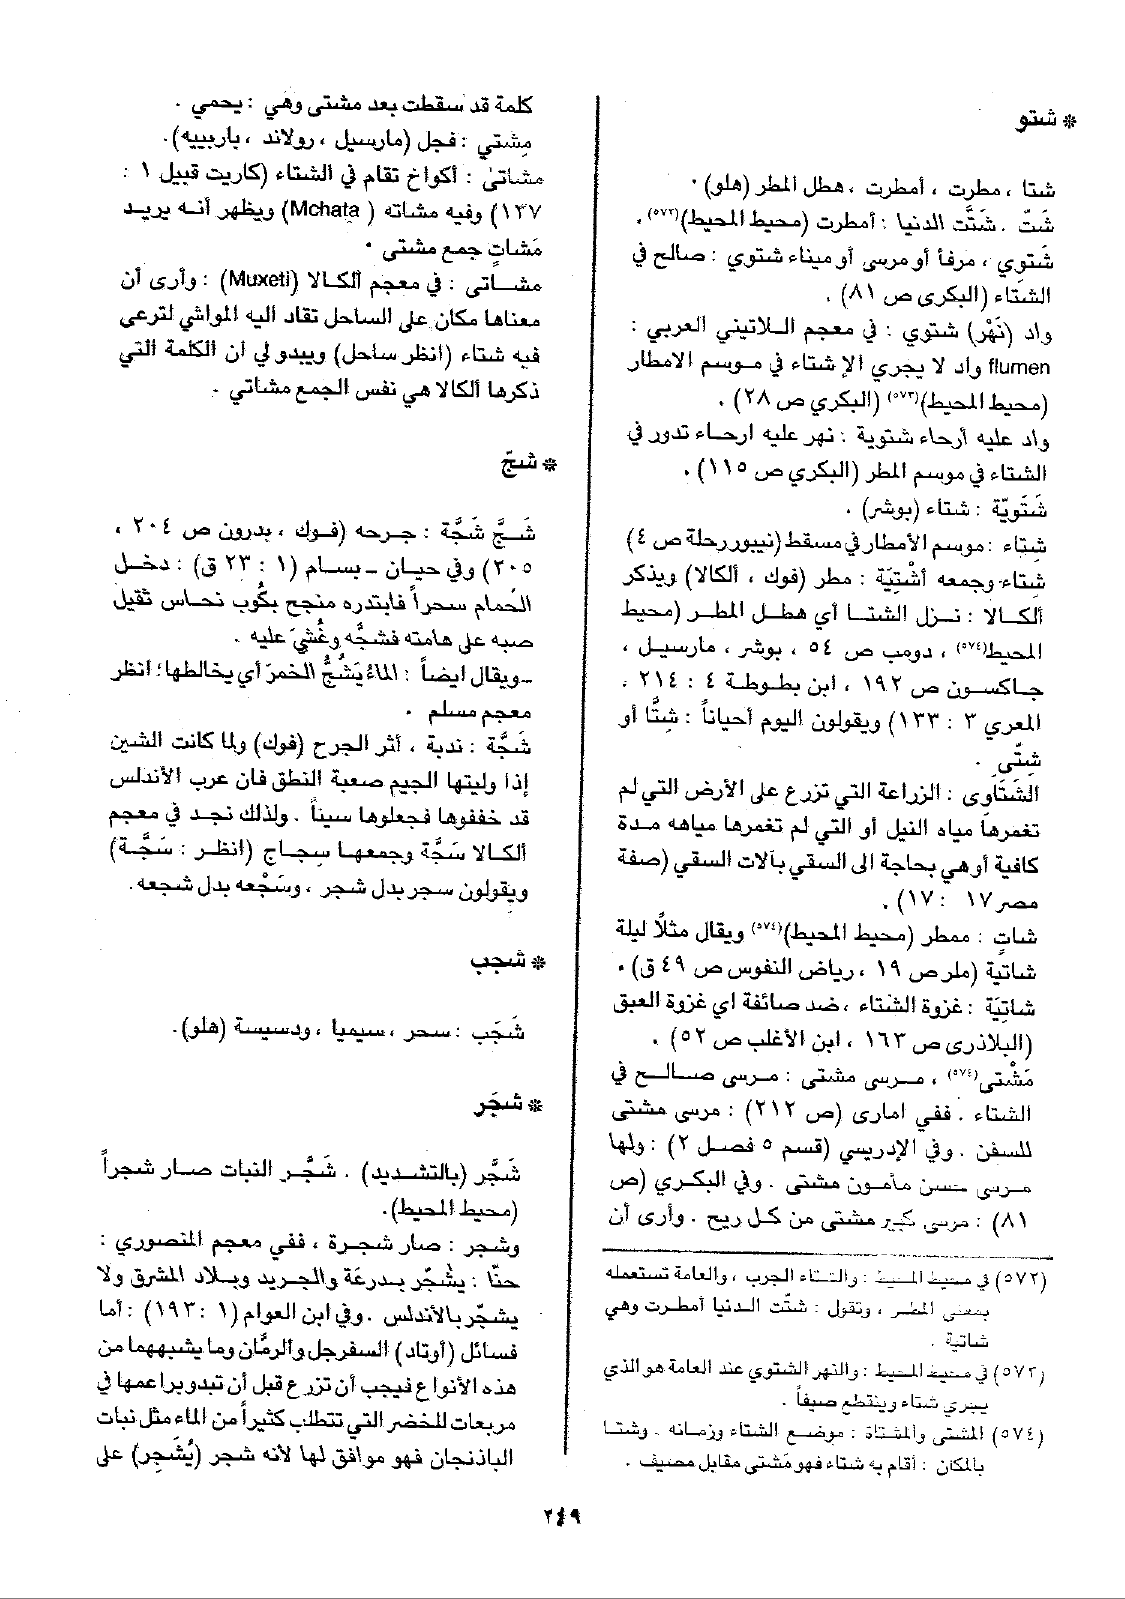 * شتو
شتا ، مطرت ، أمطرت ، هطل المطر (هلو) .
شَتّ . شتَّت الدنيا : أمطرت (محيط المحيط)(٥٧٢) .
شَتوِي ، مرفأ أو مرسى أو ميناء شتوي : صالح في
الشتاء (البكري ص ٨١) .
واد (نَهْر) شتوي : في معجم اللاتيني العربي :
flumen واد لا يجري الا شتاء في موسم الامطار
(محيط المحيط)(٥٧٣) (البكري ص ٢٨) .
واد عليه أرحاء شتوية : نهر عليه ارحاء تدور في
الشتاء في موسم المطر (البكري ص ١١٥) .
شَتَوِيّة : شتاء (بوشر) .
شِتاء : موسم الأمطار في مسقط (نيبور رحلة ص ٤)
شتاء وجمعه أشْتِيَة : مطر (فوك ، ألكالا) ويذكر
ألكالا : نزل الشتا أي هطل المطر (محيط
المحيط(٥٧٤) ، دومب ص ٥٤ ، بوشر ، مارسيل ،
جاكسون ص ١٩٢ ، ابن بطوطة ٤ : ٢١٤ .
المعري ٣ : ١٣٣) ويقولون اليوم أحياناً : شِتًّا أو
شِتّي .
الشَتَاوى : الزراعة التي تزرع على الأرض التي لم
تغمرها مياه النيل أو التي لم تغمرها مياهه مدة
كافية أو هي بحاجة الى السقي بآلات السقي (صفة
مصر ١٧ : ١٧) .
شاتٍ : ممطر (محيط المحيط)(٥٧٤) ويقال مثلاً ليلة
شاتية (ملر ص ١٩ ، رياض النفوس ص ٤٩ ق) .
شاتِيَة : غزوة الشتاء ، ضد صائفة اي غزوة العبق
(البلاذرى ص ١٦٣ ، ابن الأغلب ص ٥٢) .
مَشْتى(٥٧٤) ، مرسى مشتى : مرسى صالح في
الشتاء . ففي امارى (ص ٢١٢) : مرسى مشتى
للسفن . وفي الإدريسي (قسم ٥ فصل ٢) : ولها
مرسى حسن مأمون مشتى . وفي البكري (ص
٨١) : مرسى كبير مشتى من كل ريح . وأرى أن
(٥٧٢) في محيط المحيط : والشتاء الجرب ، والعامة تستعمله
بمعنى المطر ، وتقول : شتّت الدنيا أمطرت وهي
شاتية .
(٥٧٣) في محيط المحيط : والنهر الشتوي عند العامة هو الذي
يجري شتاء وينتطع صيفاً .
(٥٧٤) المشتى والمشتاة : موضع الشتاء وزمانه . وشتا
بالمكان : أقام به شتاء فهو مَشتى مقابل مصيف .
كلمة قد سقطت بعد مشتى وهي : يحمي .
مِشتي : فجل (مارسيل ، رولاند ، باربييه) .
مشاتىٰ : أكواخ تقام في الشتاء (كاريت قبيل ١ :
١٤٧) وفيه مشاته (Mchata) ويظهر أنه يريد
مَشاتٍ جمع مشتى .
مشاتى : في معجم ألكالا (Muxeti) : وأرى أن
معناها مكان على الساحل تقاد اليه المواشي لترعى
فيه شتاء (انظر ساحل) ويبدو لي ان الكلمة التي
ذكرها ألكالا هي نفس الجمع مشاتي .
* شجّ
شَجَّ شَجَّة : جرحه (فوك ، بدرون ص ٢٠٤ ،
٢٠٥) وفي حيان – بسام (١ : ٢٣ ق) : دخل
الحُمام سحراً فابتدره منجح بكُوب نحاس ثقيل
صبه على هامته فشجُّه وغُشيَ عليه .
– ويقال ايضاً : الماءُ يَشُجُّ الخمرَ أي يخالطها : انظر
معجم مسلم .
شَجَّة : ندبة ، أثر الجرح (فوك) ولما كانت الشين
إذا وليتها الجيم صعبة النطق فان عرب الأندلس
قد خففوها فجعلوها سيناً . ولذلك نجد في معجم
ألكالا سَجَّة وجمعها سِجاج (انظر : سَجَّة)
ويقولون سجر بدل شجر ، وسَجْعه بدل شجعه .
* شجب
شَجَب : سحر ، سيميا ، ودسيسة (هلو) .
* شجَر
شَجَّر (بالتشديد) . شَجَّر النبات صار شجراً
(محيط المحيط) .
وشجر : صار شجرة ، ففي معجم المنصوري :
حنّا : يشجّر بدرعة والجريد وبلاد المشرق ولا
يشجّر بالأندلس . وفي ابن العوام (١ : ١٩٣) : أما
فسائل (أوتاد) السفرجل والرمَّان وما يشبههما من
هذه الأنواع فيجب أن تزرع قبل أن تبدو براعمها في
مربعات للخضر التي تتطلب كثيراً من الماء مثل نبات
الباذنجان فهو موافق لها لأنه شجر (يُشَجِر) على
٢٤٩